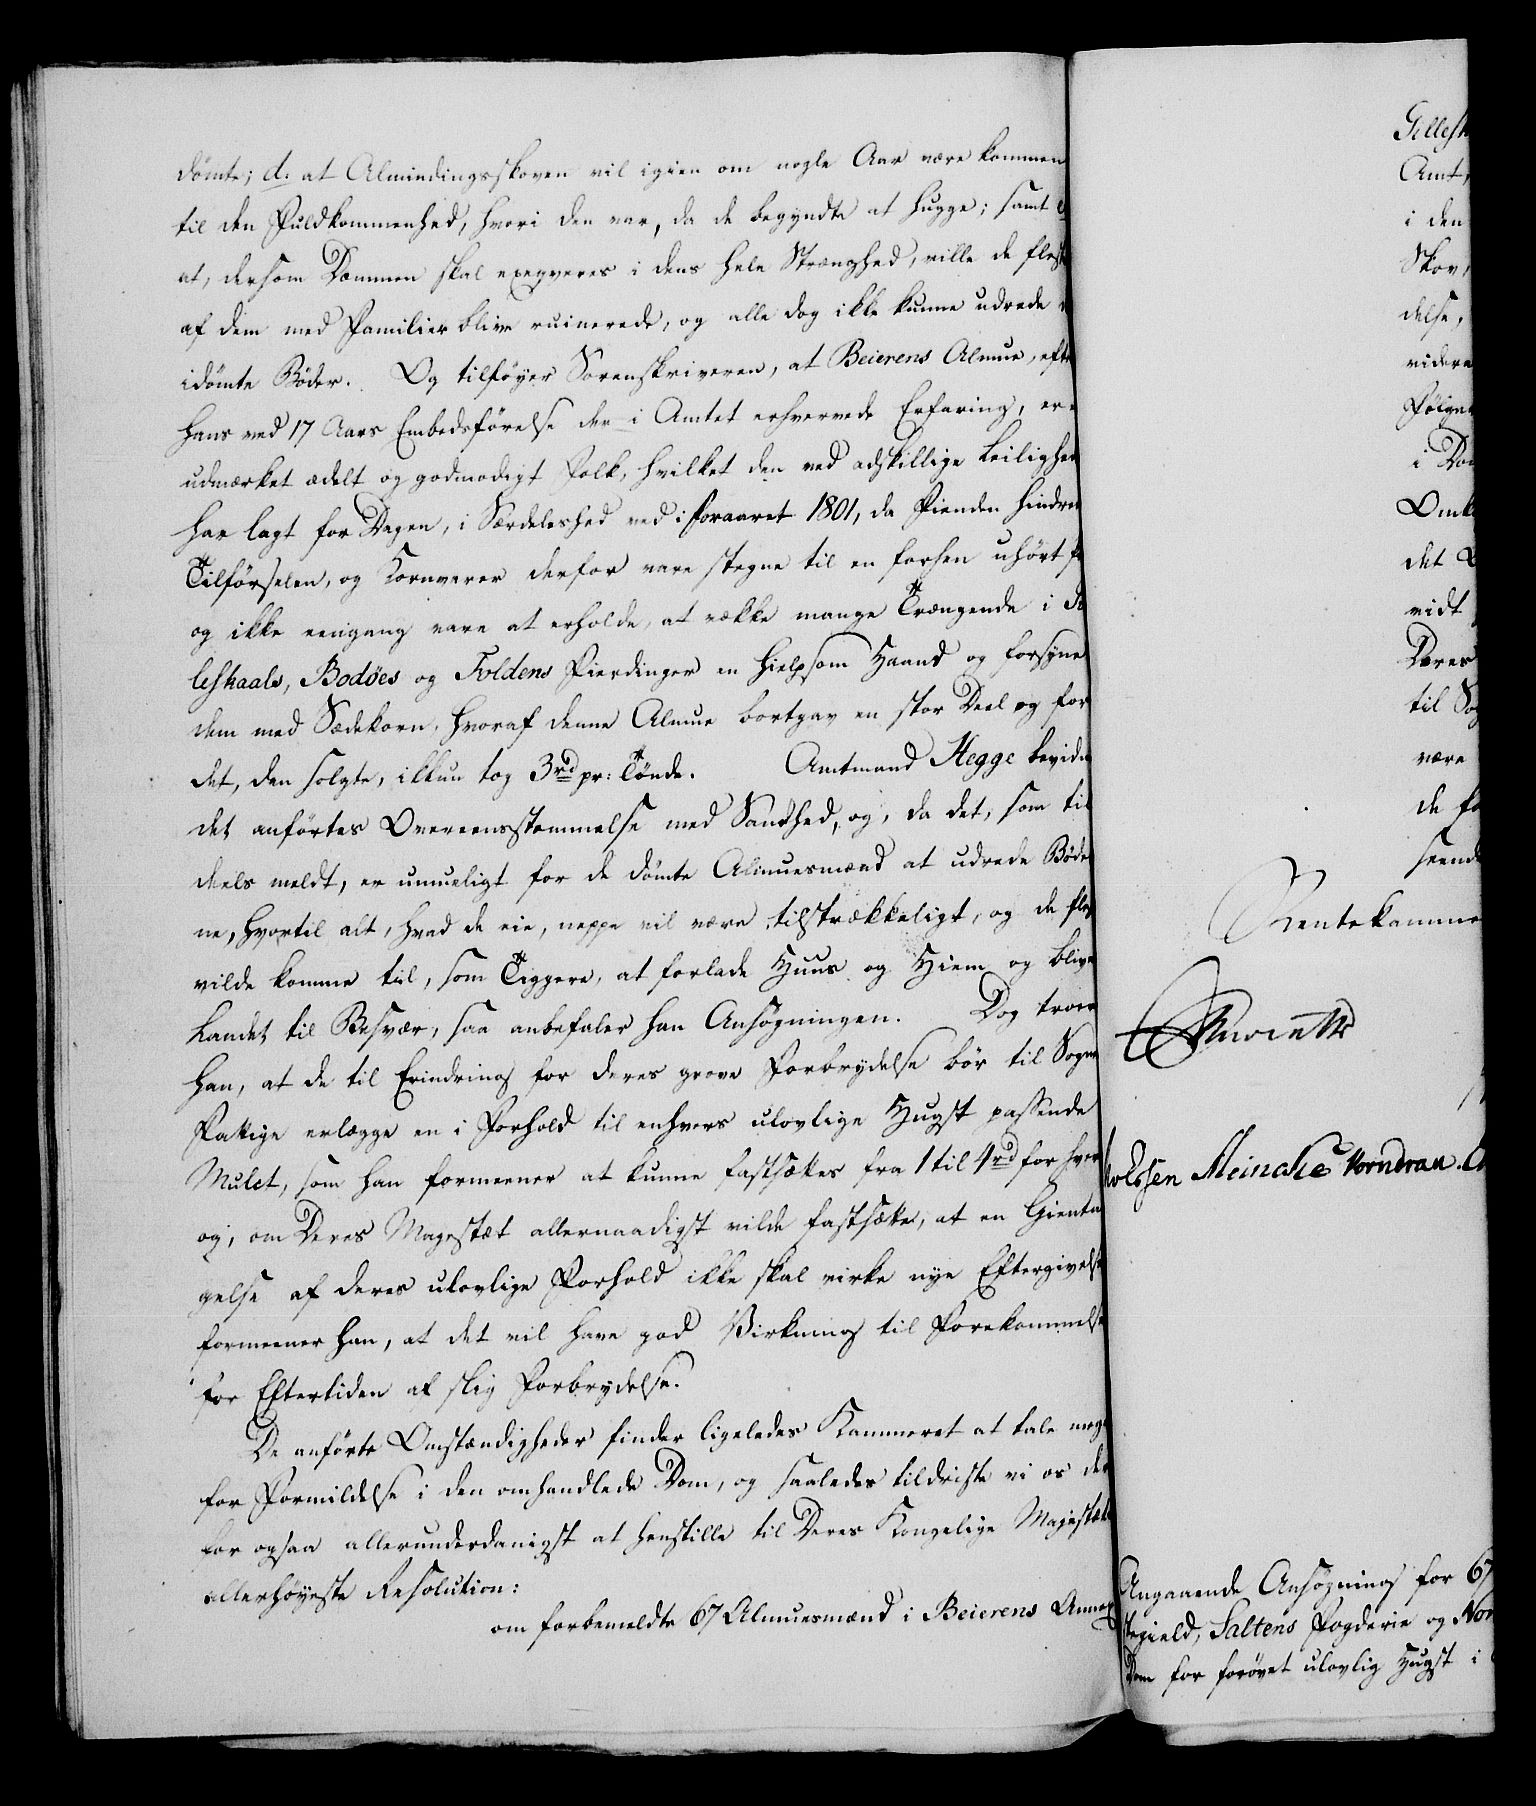 dømte; d. at Almindingsskoven vil igien om nogle Aar være kommen
til den Fuldkommenhed, hvori den var, da de begyndte at hugge; samt
at, dersom Dommen skal exeqveres i dens hele Strænghed, ville de fleste
af dem med Familier blive ruinerede, og alle dog ikke kunne udrede
idømte Bøder. Og tilføyer Sorenskriveren, at Beierens Almue, efter
hans ved 17 Aars Embedsførelse der i Amtet erhvervede Erfaring, er
udmærket ædelt og godmodigt Folk, hvilket den ved adskillige Leilighed
har lagt for Dagen, i Særdeleshed ved i Foraaret 1801, da Fienden hindrede
Tilførselen, og Kornvarer derfor vare stegne til en forhen uhørt
og ikke eengang vare at erholde, at række mange Trængende i
leskaals, Bodøes og Foldens Fierdinger en hielpsom Haand og forsyne
dem med Sædekorn, hvoraf denne Almue bortgav en stor Deel og for
det, den solgte, ikkun tog 3rd pr: Tønde. Amtmand Hegge bevidne
det anførtes Overeensstemmelse med Sandhed, og, da det, som til
deels meldt, er umueligt for de dømte Almuesmænd at udrede Bøder
ne, hvortil alt, hvad de eie, neppe vil være tilstrækkeligt, og de fles
vilde komme til, som Tiggere, at forlade Huus og Hiem og blive
Landet til Besvær, saa anbefaler han Ansøgningen. Dog troer
han, at de til Erindring for deres grove Forbrydelse bør til Sognets
Fattige erlægge en i Forhold til enhvers ulovlige Hugst passende
Mulct, som han formeener at kunne fastsættes fra 1 til 4rd for hver
og, om Deres Majestæt allernaadigst vilde fastsætte, at en Gienta
gelse af deres ulovlige Forhold ikke skal virke nye Eftergivelse
formeener han, at det vil have god Virkning til Forekommelse
for Eftertiden af slig Forbrydelse.
De anførte Omstændigheder finder ligeledes Kammeret at tale meget
for Formildelse i den omhandlede Dom, og saaledes tildriste vi os der
for ogsaa allerunderdanigst at henstille til Deres Kongelige Majestæts
allerhøyeste Resolution:
om forbemeldte 67 Almuesmænd i Beierens Annex
Gillesk
Amt,
i den
Skov,
delse,
videre
Følger
i Dom
Omk
det
vidt
Deres
til Sog
være
de fo
seende
Rentekamme
Meinche Vorndran.
Angaaende Ansøgning for 67
stegield, Saltens Fogderie og Nor
Dom for forøvet ulovlig Hugst i